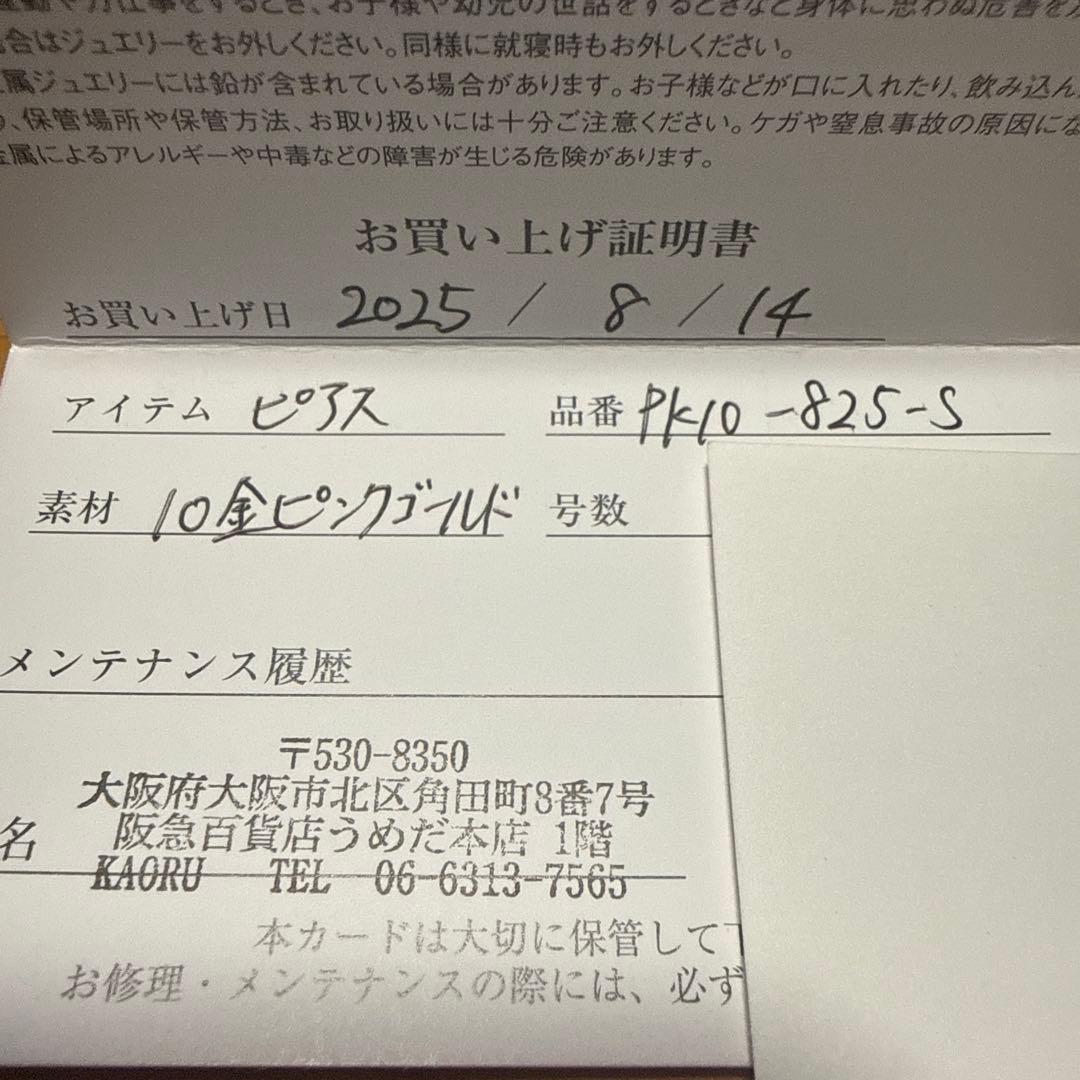 運動や力仕事をするとき、お子様や幼児の世話をするときなど身体に思わぬ危害を
場合はジュエリーをお外しください。同様に就寝時もお外しください。
属ジュエリーには鉛が含まれている場合があります。お子様などが口に入れたり、飲み込ん
、保管場所や保管方法、お取り扱いには十分ご注意ください。ケガや窒息事故の原因にな
金属によるアレルギーや中毒などの障害が生じる危険があります。
お買い上げ証明書
お買い上げ日 2025 / 8 / 14
アイテム ピアス 品番 PK10-825-S
素材 10金ピンクゴールド 号数
メンテナンス履歴
〒530-8350
大阪府大阪市北区角田町8番7号
名 阪急百貨店うめだ本店 1階
KAORU TEL 06-6313-7565
本カードは大切に保管して
お修理・メンテナンスの際には、必ず